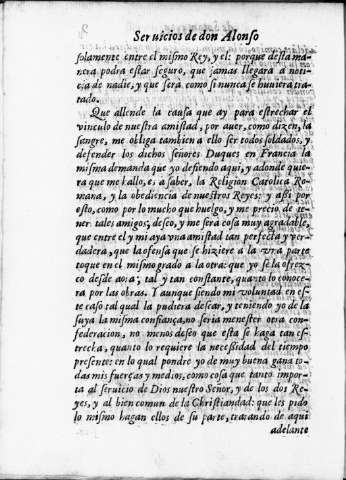 Seruicios de don Alonso
solamente entre el mismo Rey, y el: porque desta ma-
nera podra estar seguro, que jamas llegarà a noti-
cia de nadie, y que será como si nunca se huuiera tra-
tado.
Que allende la causa que ay para estrechar el
vinculo de nuestra amistad, por auer, como dizen, la
sangre, me obliga tambien a ello ser todos soldados, y
defender los dichos señores Duques en Francia la
misma demanda que yo defiendo aqui, y adonde quie-
ra que me hallo, es a saber, la Religion Catolica Ro-
mana, y la obediencia de nuestros Reyes: y assi por
esto, como por lo mucho que huelgo, y me precio de te-
ner tales amigos, desseo, y me será cosa muy agradable,
que entre el y mi aya vna amistad tan perfecta y ver-
dadera, que la ofensa que se hiziere a la vna parte
toque en el mismo grado a la otra: que yo se la ofrez-
co desde aora, tal y tan constante, quanto lo conoce-
ra por las obras. I aunque siendo mi voluntad en es-
te caso tal qual la pudiera dessear, y teniendo yo de la
suya la misma confiança, no seria menester otra con-
federacion, no menos desseo que esta se haga tan es-
trecha, quanto lo requiere la necessidad del tiempo
presente: en lo qual pondre yo de muy buena gana to-
das mis fuerças y medios, como cosa que tanto impor-
ta al seruicio de Dios nuestro Señor, y de los dos Re-
yes, y al bien comun de la Christiandad: que les pido
lo mismo hagan ellos de su parte, tratando de aqui
adelante